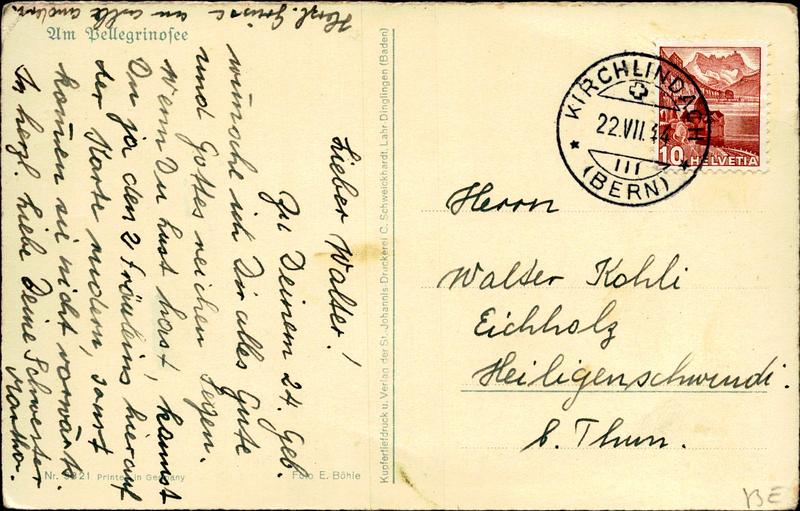 Herzl. Grüsse an alle andern.
Am Pellegrinosee
Lieber Walter!
Zu Deinem 24. Geb.
wünsche ich Dir alles Gute
und Gottes reichen Segen.
Wenn Du Lust hast, kannst
Du ja den 2 Fräuleins hierauf
der Karte rudern, sonst
kommen sie nicht vorwärts.
In herzl. Liebe Deine Schwester
Martha.
Nr. 9321 Printed in Germany
Foto E. Böhle
Kupfertiefdruck u. Verlag der St. Johannis-Druckerei C. Schweickhardt, Lahr-Dinglingen (Baden)
KIRCHLINDACH
22.VII.44
III
(BERN)
10 HELVETIA
Herrn
Walter Kohli
Eichholz
Heiligenschwendi.
b. Thun.
BE